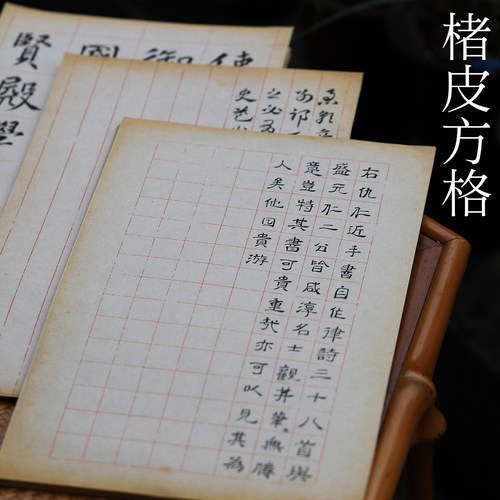 楮皮方格
右仇仁近手書自作律詩三十八首與
盛元仁二公皆咸淳名士觀其筆無勝
意豈特其書可貴重哉亦可以見其為
人矣他日貴游
御
國
賢殿學